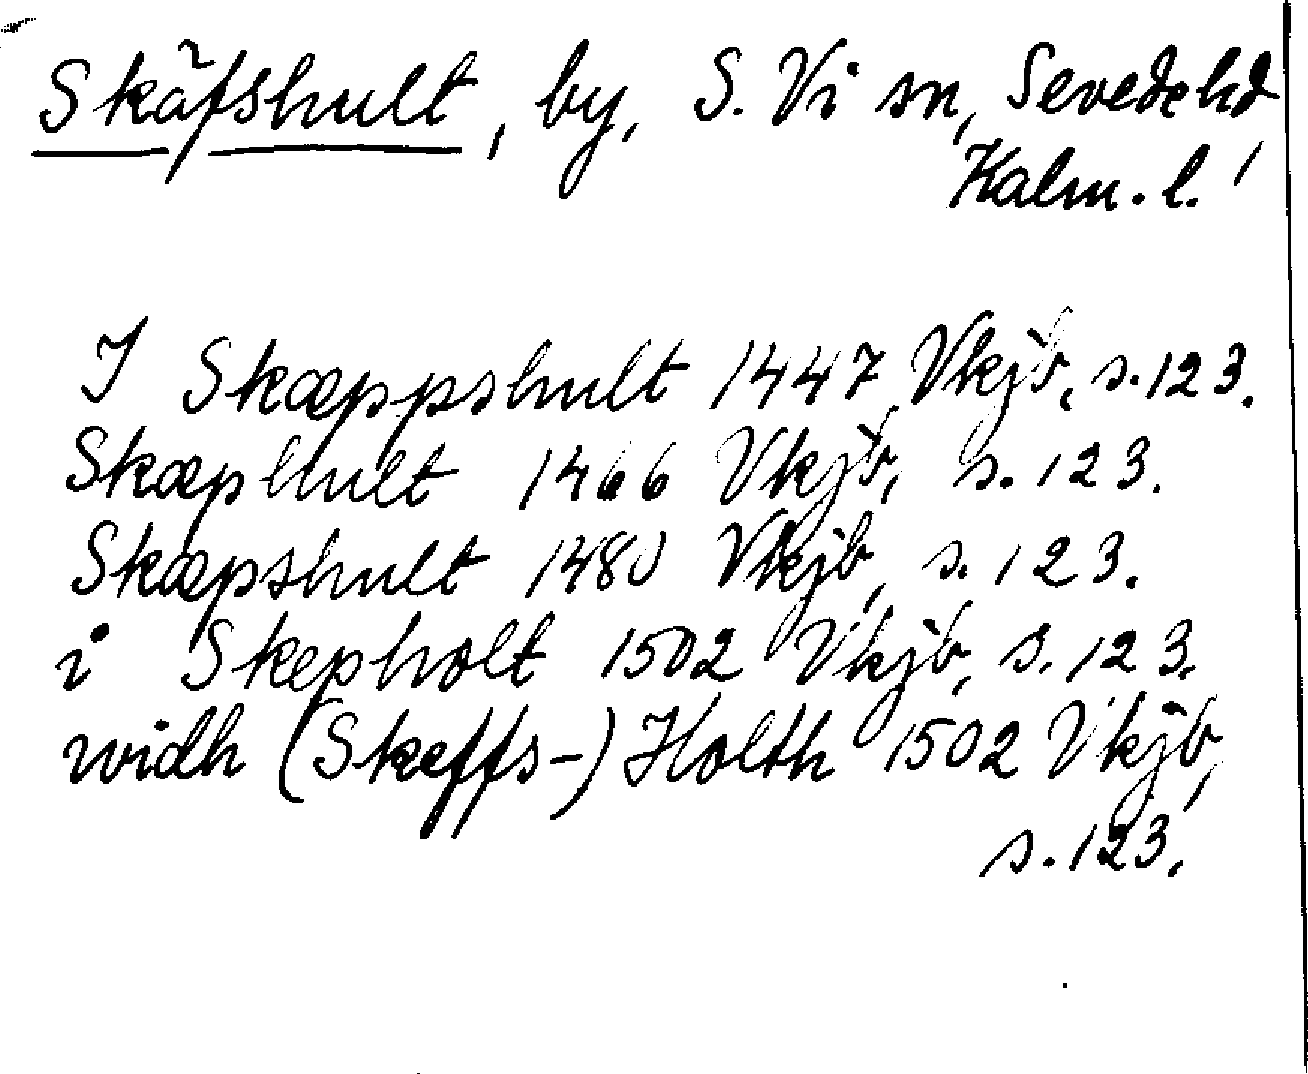 Skäfshult, by, S. Vi sn, Sevede hd,
Kalm. l.
I Skæppshult 1447 Vkjb, s. 123.
Skæphult 1466 Vkjb, s. 123.
Skæpshult 1480 Vkjb, s. 123.
i Skepholt 1502 Vkjb, s. 123.
widh (Skeffs-) Holth 1502 Vkjb,
s. 123.